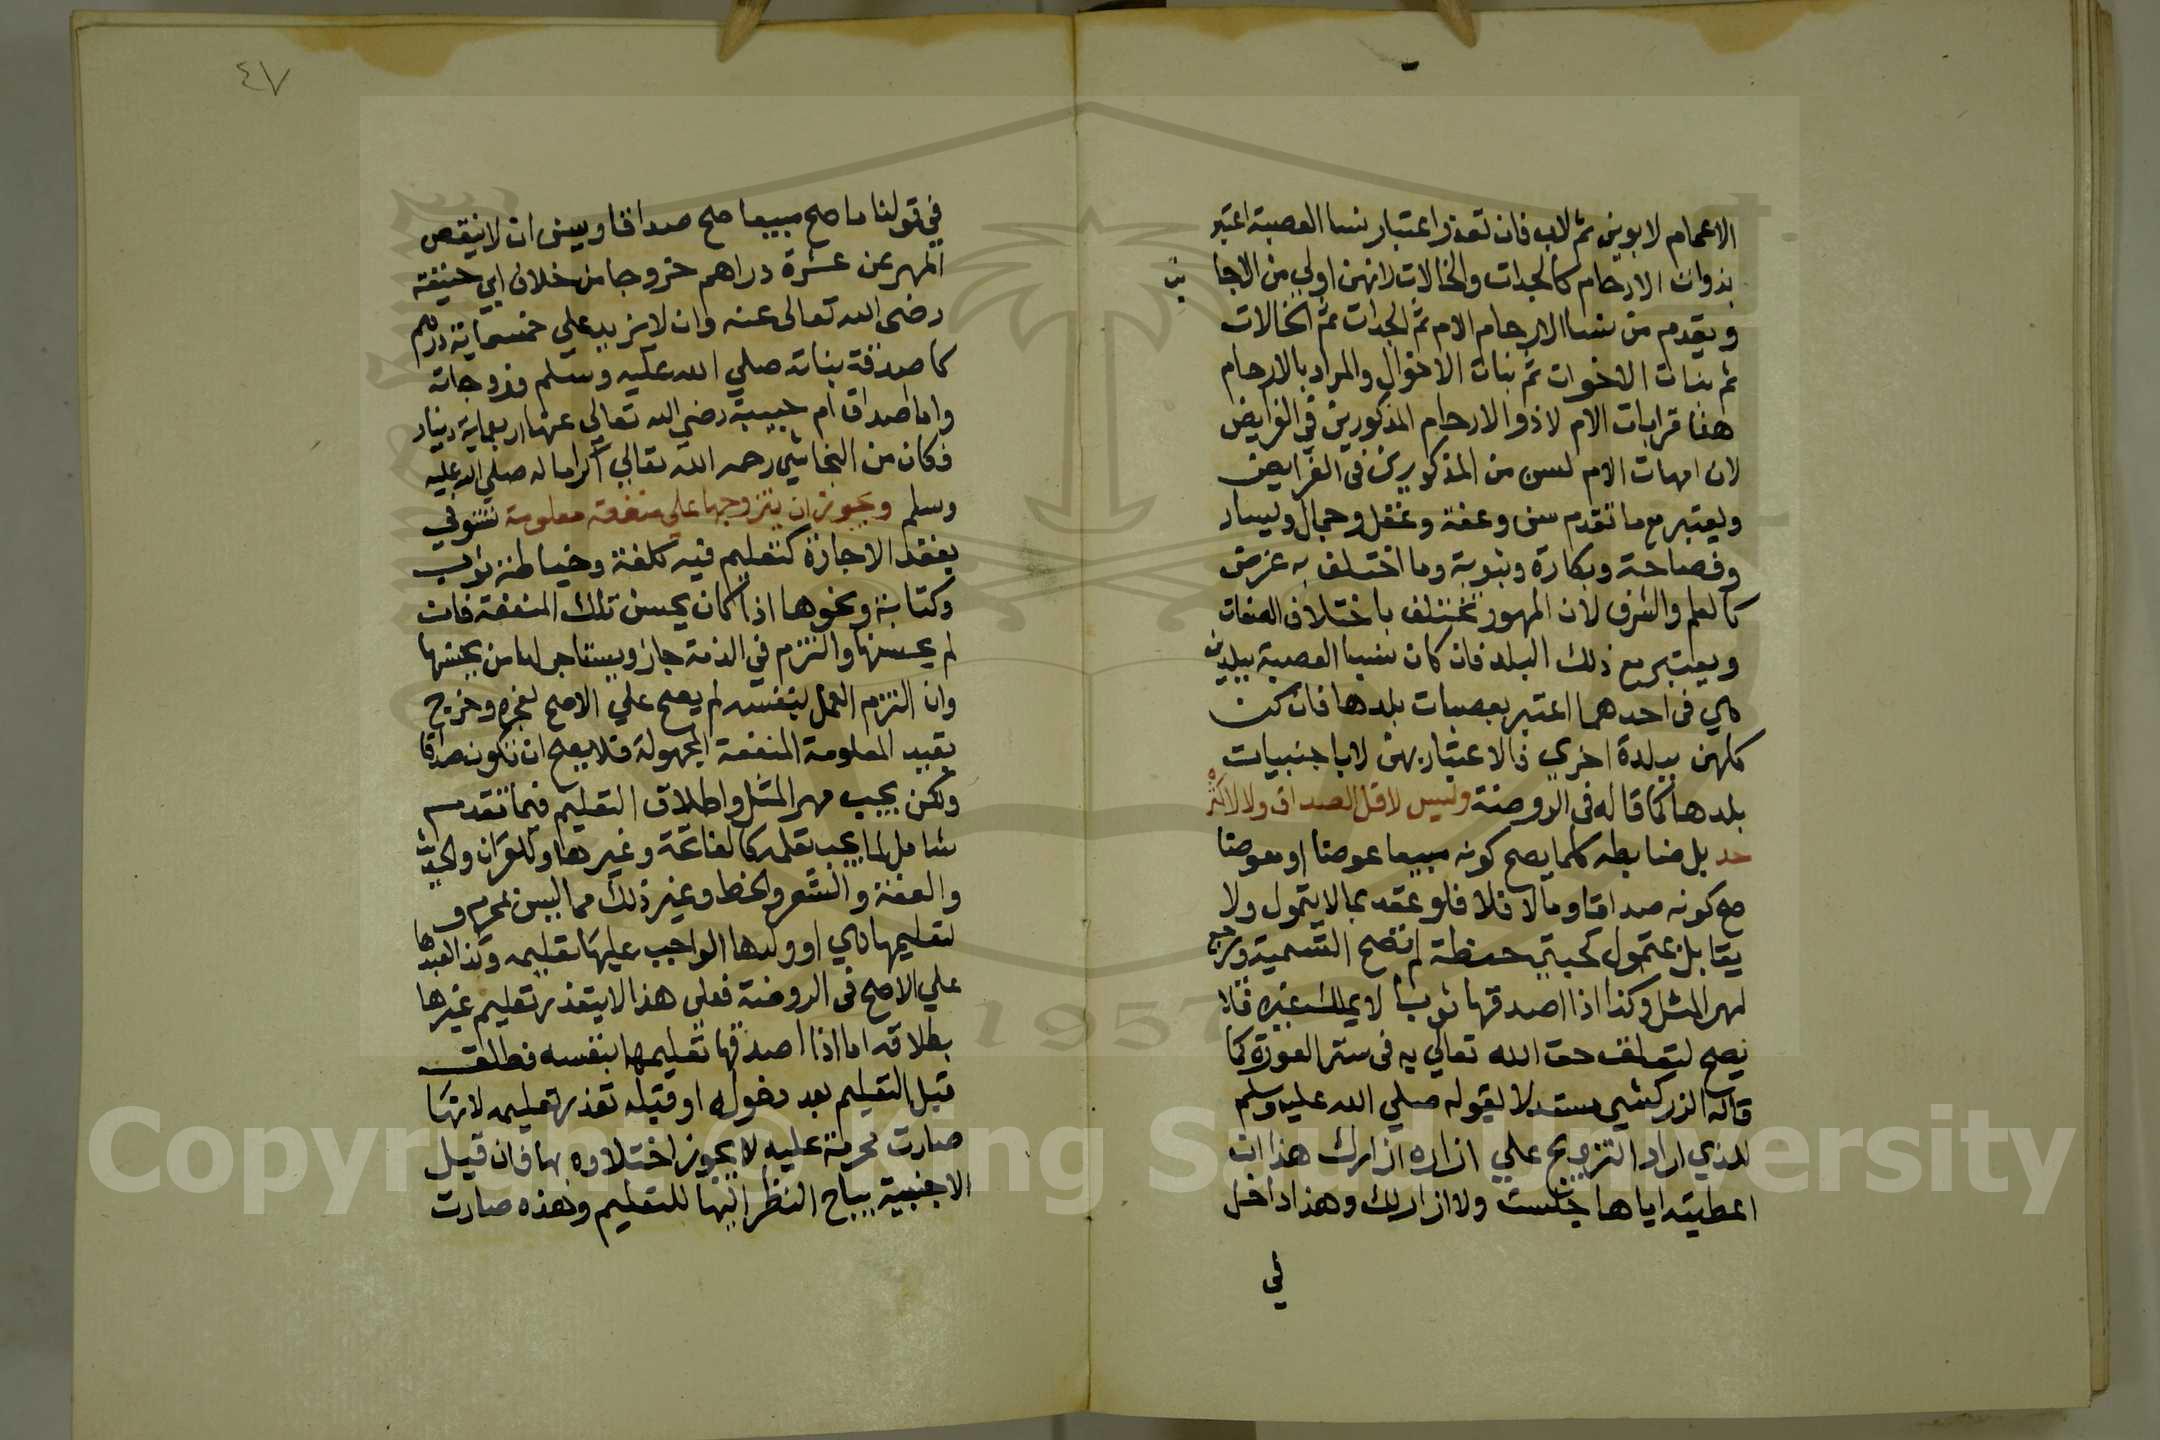 الاعمام لابوين ثم لاب فان تعذر اعتبار نسا العصبة اعتبر
بذوات الارحام كالجدات والخالات لانهن اولي من الاجا
نب
ويقدم من نسا الارحام الام ثم الجدات ثم الخالات
ثم بنات الاخوات ثم بنات الاخوال والمراد بالارحام
هنا قرابات الام لا ذوالارحام المذكورين في الفرايض
لان امهات الام لسن من المذكورين في الفرايض
ويعتبر مع ما تقدم سن وعفة وعقل وجمال ويسار
وفصاحة وبكارة وثيوبة وما اختلف به غرض
كالعلم والشرف لان المهور تختلف باختلاف الصفات
ويعتبر مع ذلك البلد فان كان نسا العصبة ببلدين
هي في احدهما اعتبر بعصبات بلدها فان كن
كلهن ببلدة اخري فالاعتبار بهن لا باجنبيات
بلدها كما قاله في الروضة وليس لاقل الصداق ولا لاكثره
حد بل ضابطه كلما يصح كونه مبيعا عوضا او معوضا
صح كونه صداقا ومالا فلا فلو عقد بما لا يتمول ولا
يقابل بمتمول كحبتي حنطة لم تصح التسمية ويرجع
لمهر المثل وكذا اذا اصدقها ثوبا لا يملك غيره فلا
يصح لتعلق حق الله تعالي به في ستر العورة كما
قاله الزركشي مستدلا بقوله صلي الله عليه وسلم
للذي اراد التزويج علي ازاره ازارك هذا ان
اعطيته اياها جلست ولا ازار لك وهذا داخل
في
٤٧
في قولنا ما صح مبيعا صح صداقا ويسن ان لا ينقص
المهر عن عشرة دراهم خروجا من خلاف ابي حنيفة
رضي الله تعالى عنه وان لا يزيد علي خمسماية درهم
كاصدقة بناته صلي الله عليه وسلم وزوجاته
واما صداق ام حبيبة رضي الله تعالي عنها اربعماية دينار
فكان من النجاشي رحمه الله تعالي اكراما له صلي الله عليه
وسلم ويجوز ان يتزوجها علي منفعة معلومة تستوفي
بعقد الاجارة كتعليم فيه كلفة وخياطة ثوب
وكتابة ونحوها اذا كان يحسن تلك المنفعة فان
لم يحسنها والتزم في الذمة جاز ويستاجر لها من يحسنها
وان التزم العمل بنفسه لم يصح علي الاصح لعجزه وخرج
بقيد المعلومة المنفعة المجهولة فلا يصح ان تكون صداقا
ولكن يجب مهر المثل واطلاق التعليم فيما تقدم
شامل لما يجب تعلمه كالفاتحة وغيرها وللقران والحديث
والفقه والشعر والخط وغير ذلك مما ليس بمحرم و
لتعليمها هي او ولدها الواجب عليها تعليمه وكذا لعبدها
علي الاصح في الروضة فعلي هذا لا يتعذر تعليم غيرها
بطلاقه اما اذا اصدقها تعليمها بنفسه فطلق
قبل التعليم بعد دخول او قبله تعذر تعليمه لانها
صارت محرمة عليه لا يجوز اختلاوه بها فان قيل
الاجنبية يباح النظر اليها للتعليم وهذه صارت
Copyright © King Saud University
1957